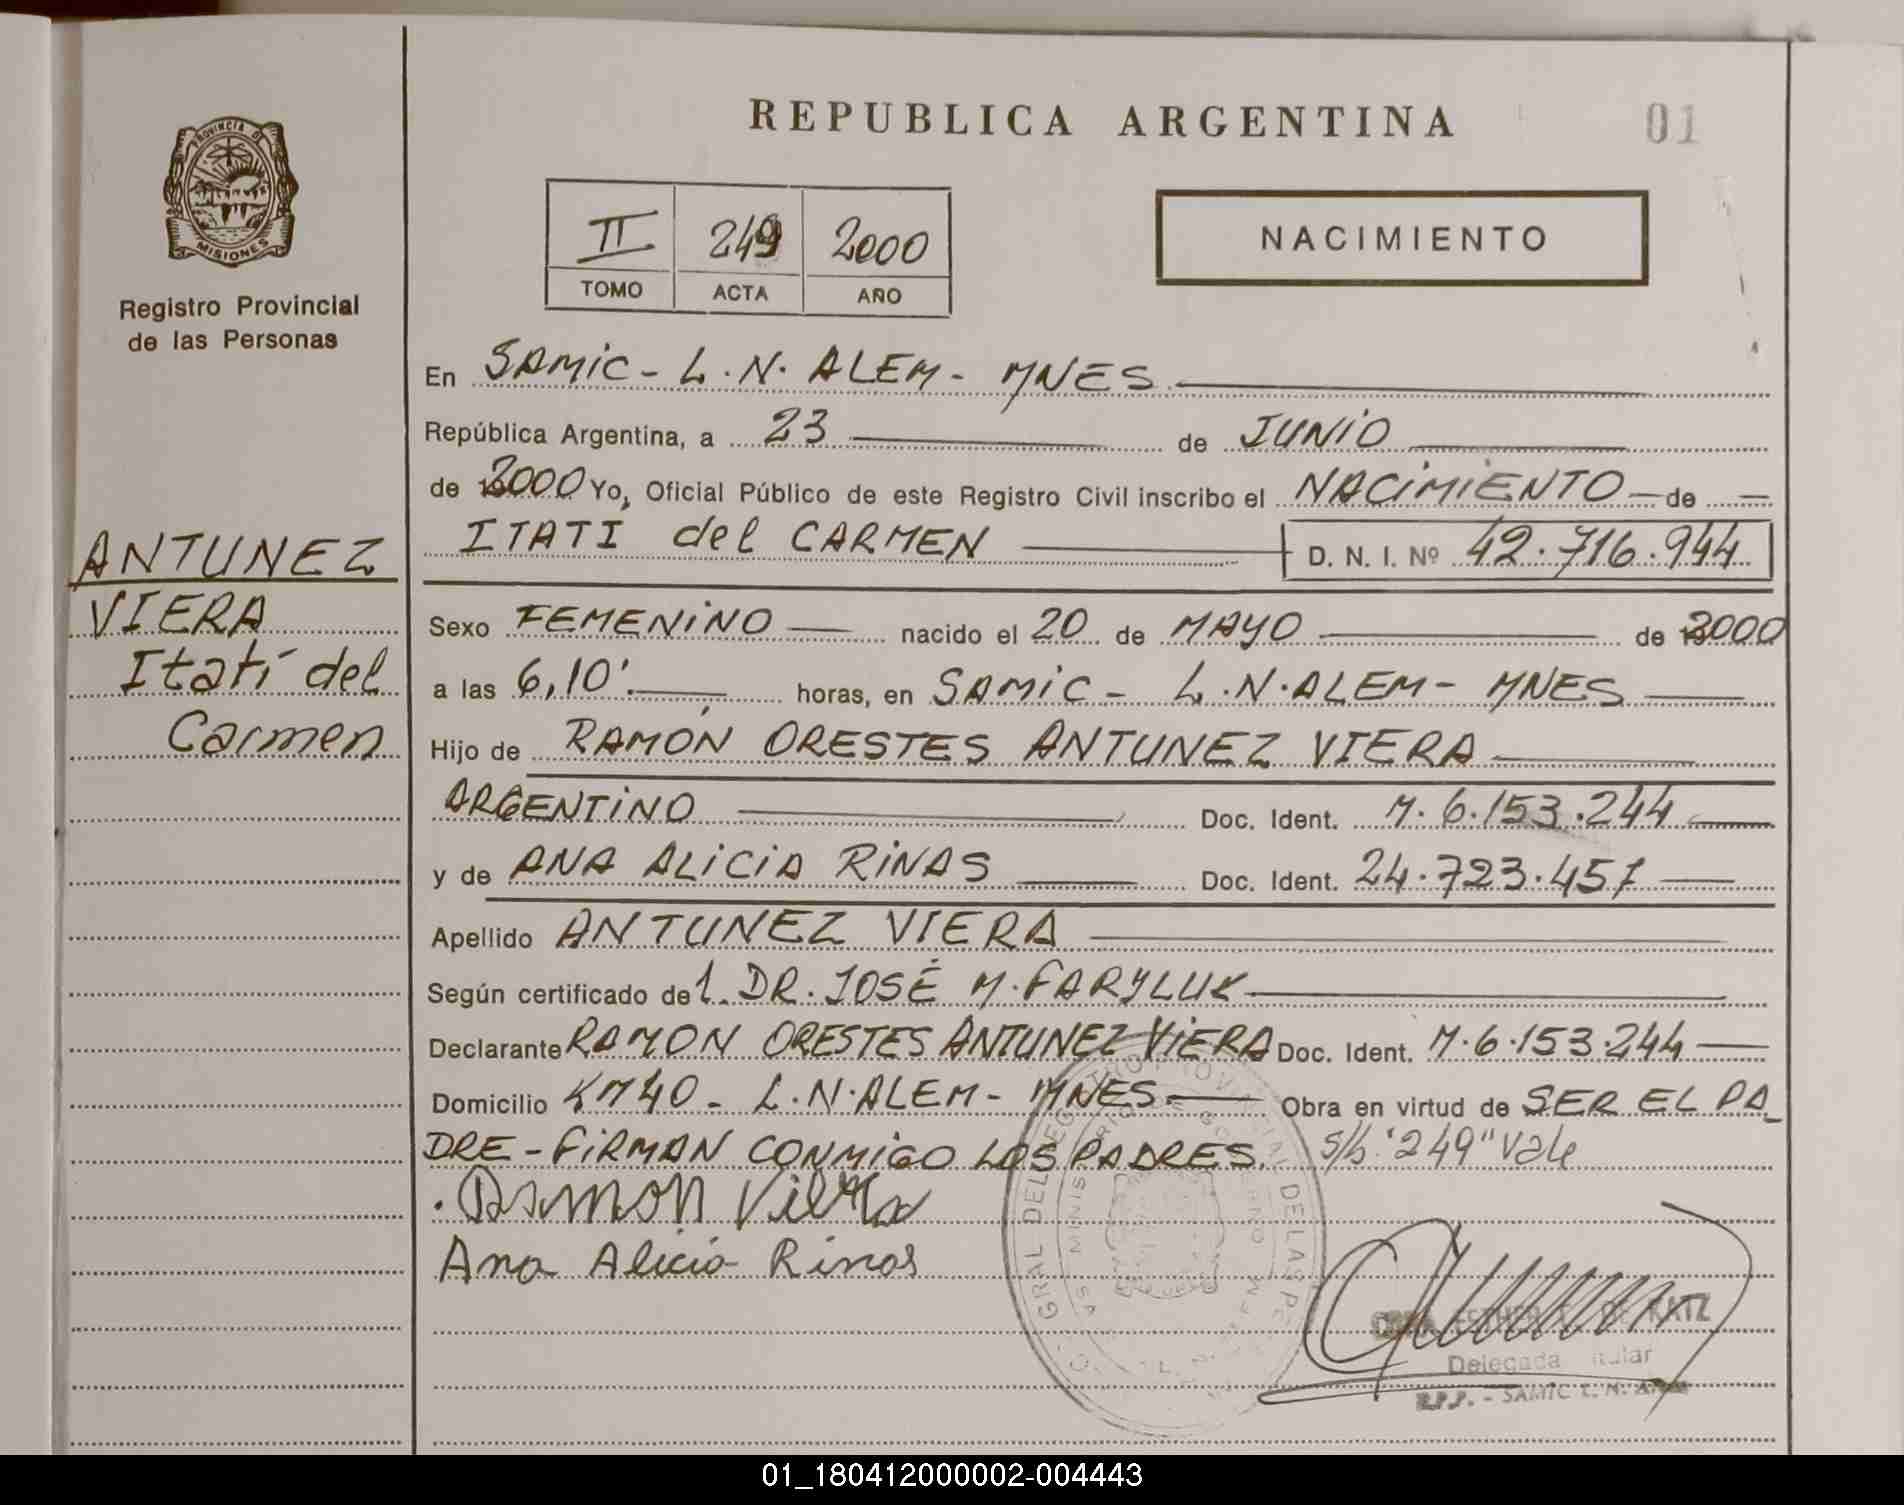 REPUBLICA ARGENTINA
01
PROVINCIA DE
MISIONES
Registro Provincial
de las Personas
II 249 2000
TOMO ACTA AÑO
NACIMIENTO
En SAMIC - L.N. ALEM - MNES
República Argentina, a 23 de JUNIO
de 2000 Yo, Oficial Público de este Registro Civil inscribo el NACIMIENTO de
ITATI del CARMEN D. N. I. Nº 42.716.944
ANTUNEZ
VIERA
Itatí del
Carmen
Sexo FEMENINO nacido el 20 de MAYO de 2000
a las 6,10'. horas, en SAMIC - L.N. ALEM - MNES
Hijo de RAMÓN ORESTES ANTUNEZ VIERA
ARGENTINO Doc. Ident. M. 6.153.244
y de ANA ALICIA RINAS Doc. Ident. 24.723.457
Apellido ANTUNEZ VIERA
Según certificado del. DR. JOSÉ M. FARYLUK
Declarante RAMON ORESTES ANTUNEZ VIERA Doc. Ident. M. 6.153.244
Domicilio KM 40 - L.N. ALEM - MNES. Obra en virtud de SER EL PA_
DRE - FIRMAN CONMIGO LOS PADRES. s/b: "249" Vale
Ramon Viera
Ana Alicia Rinas
ESTHER DE KATZ
Delegada Titular
R.P.P. - SAMIC L. N. ALEM
01_180412000002-004443